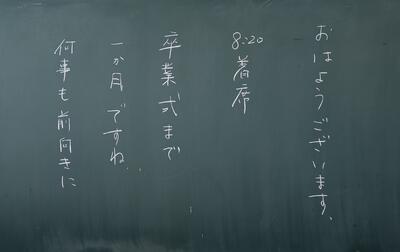 おはようございます。
8:20着席
卒業式まで
一か月ですね
何事も前向きに